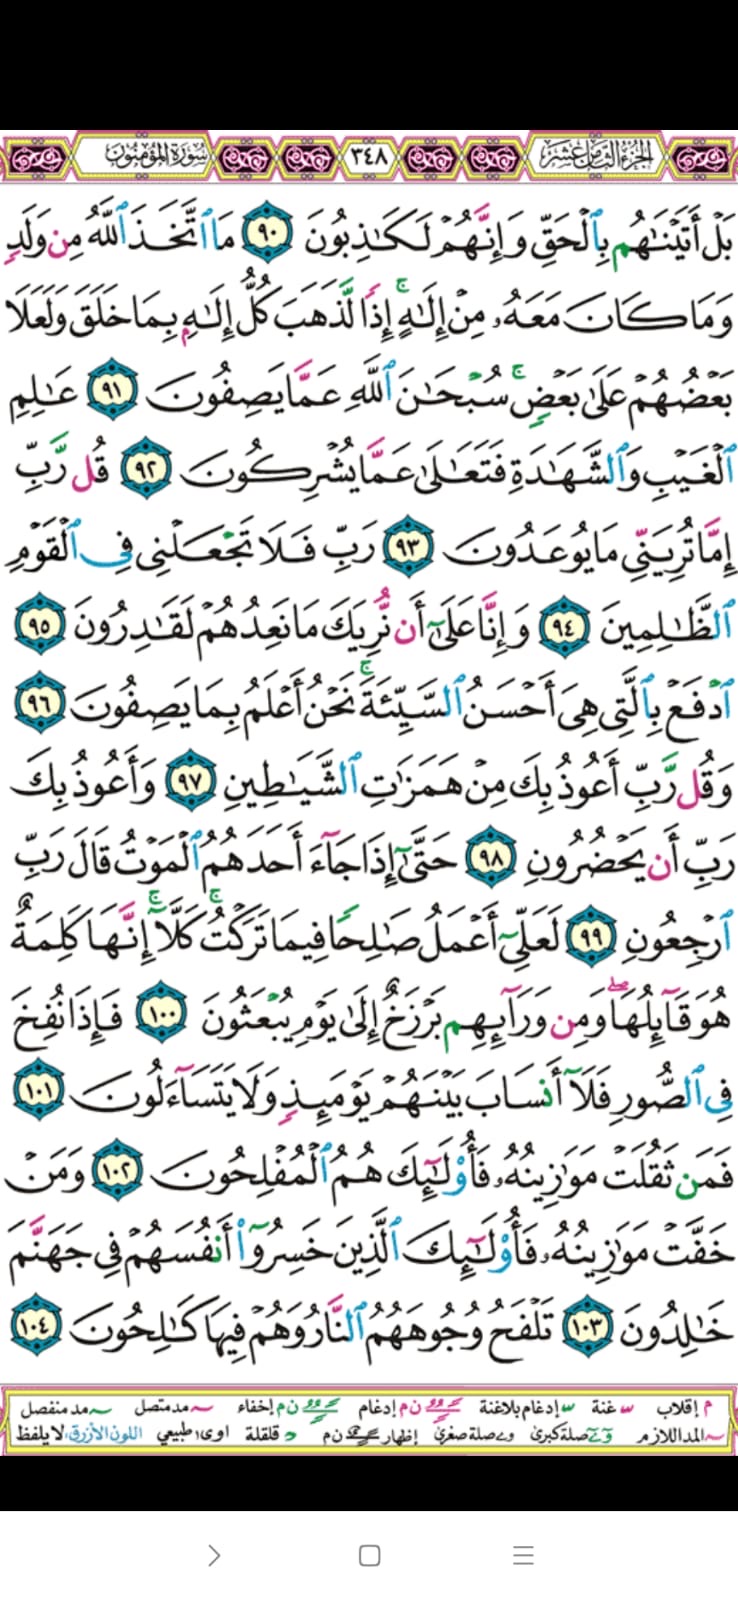 الجزء الثامن عشر ٣٤٨ سورة المؤمنون
بَلْ أَتَيْنَٰهُم بِٱلْحَقِّ وَإِنَّهُمْ لَكَٰذِبُونَ ٩٠ مَا ٱتَّخَذَ ٱللَّهُ مِن وَلَدٍ
وَمَا كَانَ مَعَهُۥ مِنْ إِلَٰهٍ ۚ إِذًا لَّذَهَبَ كُلُّ إِلَٰهٍۭ بِمَا خَلَقَ وَلَعَلَا
بَعْضُهُمْ عَلَىٰ بَعْضٍ ۚ سُبْحَٰنَ ٱللَّهِ عَمَّا يَصِفُونَ ٩١ عَٰلِمِ
ٱلْغَيْبِ وَٱلشَّهَٰدَةِ فَتَعَٰلَىٰ عَمَّا يُشْرِكُونَ ٩٢ قُل رَّبِّ
إِمَّا تُرِيَنِّى مَا يُوعَدُونَ ٩٣ رَبِّ فَلَا تَجْعَلْنِى فِى ٱلْقَوْمِ
ٱلظَّٰلِمِينَ ٩٤ وَإِنَّا عَلَىٰٓ أَن نُّرِيَكَ مَا نَعِدُهُمْ لَقَٰدِرُونَ ٩٥
ٱدْفَعْ بِٱلَّتِى هِىَ أَحْسَنُ ٱلسَّيِّئَةَ ۚ نَحْنُ أَعْلَمُ بِمَا يَصِفُونَ ٩٦
وَقُل رَّبِّ أَعُوذُ بِكَ مِنْ هَمَزَٰتِ ٱلشَّيَٰطِينِ ٩٧ وَأَعُوذُ بِكَ
رَبِّ أَن يَحْضُرُونِ ٩٨ حَتَّىٰٓ إِذَا جَآءَ أَحَدَهُمُ ٱلْمَوْتُ قَالَ رَبِّ
ٱرْجِعُونِ ٩٩ لَعَلِّىٓ أَعْمَلُ صَٰلِحًا فِيمَا تَرَكْتُ ۚ كَلَّآ ۚ إِنَّهَا كَلِمَةٌ
هُوَ قَآئِلُهَا ۖ وَمِن وَرَآئِهِم بَرْزَخٌ إِلَىٰ يَوْمِ يُبْعَثُونَ ١٠٠ فَإِذَا نُفِخَ
فِى ٱلصُّورِ فَلَآ أَنسَابَ بَيْنَهُمْ يَوْمَئِذٍ وَلَا يَتَسَآءَلُونَ ١٠١
فَمَن ثَقُلَتْ مَوَٰزِينُهُۥ فَأُو۟لَٰٓئِكَ هُمُ ٱلْمُفْلِحُونَ ١٠٢ وَمَنْ
خَفَّتْ مَوَٰزِينُهُۥ فَأُو۟لَٰٓئِكَ ٱلَّذِينَ خَسِرُوٓا۟ أَنفُسَهُمْ فِى جَهَنَّمَ
خَٰلِدُونَ ١٠٣ تَلْفَحُ وُجُوهَهُمُ ٱلنَّارُ وَهُمْ فِيهَا كَٰلِحُونَ ١٠٤
م إقلاب غنة إدغام بلاغنة ن م إدغام ن م إخفاء مد متصل مد منفصل
المد اللازم صلة كبرى صلة صغرى إظهار ن م قلقلة اوى طبيعي اللون الأزرق، لا يلفظ